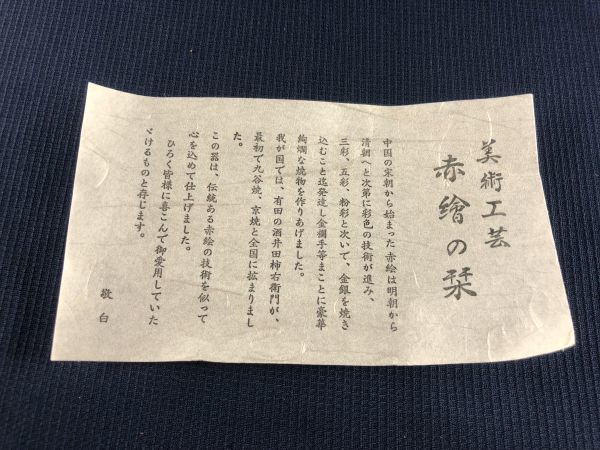 美術工芸
赤繪の栞
中国の宋朝から始まった赤絵は明朝から
清朝へと次第に彩色の技術が進み、
三彩、五彩、粉彩と次いで、金銀を焼き
込むこと迄発達し金襴手等まことに豪華
絢爛な焼物を作りあげました。
我が国では、有田の酒井田柿右衛門が、
最初で九谷焼、京焼と全国に拡まりまし
た。
この器は、伝統ある赤絵の技術を似って
心を込めて仕上げました。
ひろく皆様に喜こんで御愛用していた
どけるものと存じます。
敬白